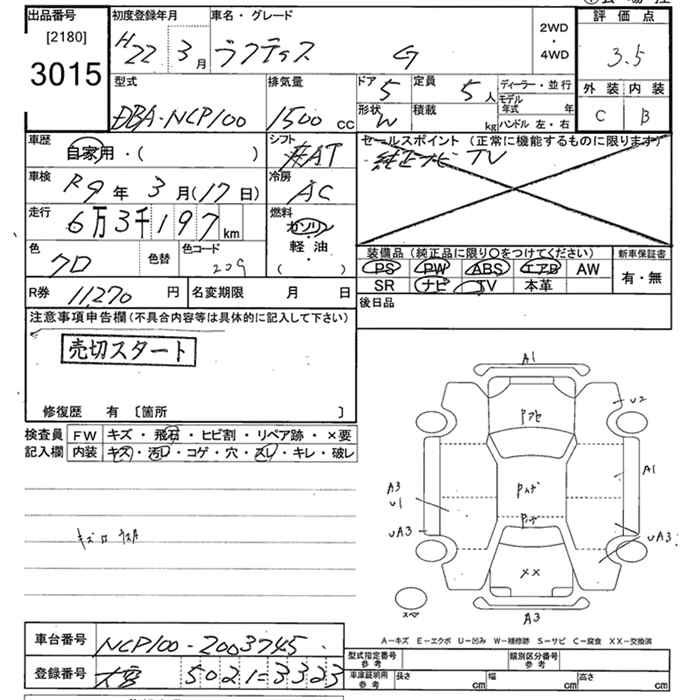 出品番号 初度登録年月 車名・グレード 評価点
[2180] 2WD・4WD
3015 H22年3月 ラクティス G 3.5
型式 排気量 ドア 5 定員 5人 ディーラー・並行 外装 内装
DBA-NCP100 1500cc 形状 W 積載 kg モデル年式 年 C B
ハンドル 左・右
車歴 自家用・( ) シフト AT セールスポイント (正常に機能するものに限ります)
純正ナビ TV
車検 R9年3月(17日) 冷房 AC
走行 6万3千197km 燃料 ガソリン
軽・油
( )
色 クロ 色替 色コード 209 装備品 (純正品に限り○をつけてください) 新車保証書
PS PW ABS エアB AW 有・無
SR ナビ TV 本革
R券 11,270円 名変期限 月 日 後日品
注意事項申告欄(不具合内容等は具体的に記入して下さい)
売切スタート
修復歴 有 〔箇所 〕
検査員 FW キズ・飛石・ヒビ割・リペア跡・×要
記入欄 内装 キズ・汚レ・コゲ・穴・スレ・キレ・破レ
A1
U2
Pアセ
A1
A3
U1
Pハゲ
Pハゲ
UA3
UA3
××
スペア
A3
A-キズ E-エクボ U-凹み W-補修跡 S-サビ C-腐食 XX-交換済
車台番号 NCP100-2003745
型式指定番号 参考 類別区分番号 参考
登録番号 大宮 502に3323
車庫証明用 参考 長さ cm 幅 cm 高さ cm